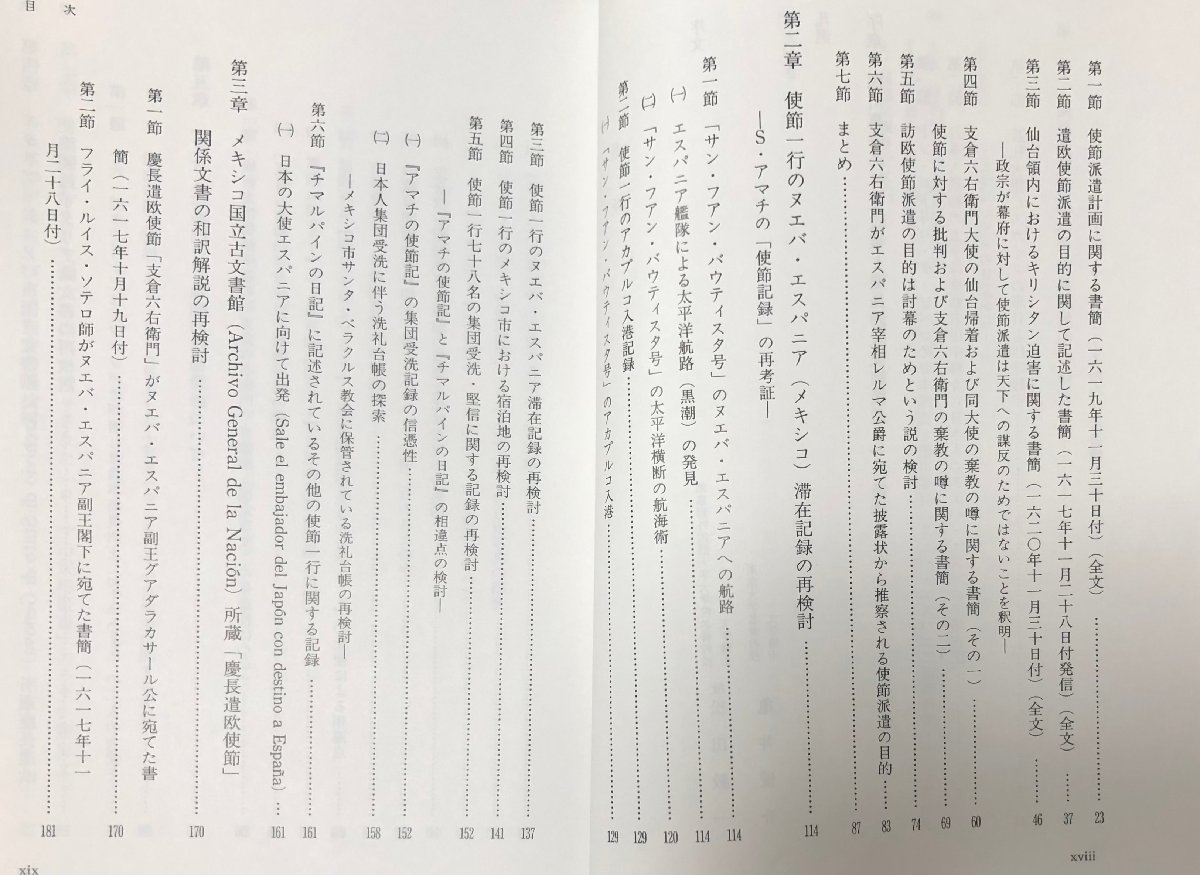 第一節　使節派遣計画に関する書簡（一六一九年十一月三十日付）（全文）……………………23
第二節　遣欧使節派遣の目的に関して記述した書簡（一六一七年十一月二十八日付発信）（全文）……37
第三節　仙台領内におけるキリシタン迫害に関する書簡（一六二〇年十一月三十日付）（全文）……46
―政宗が幕府に対して使節派遣は天下への謀反のためではないことを釈明―
第四節　支倉六右衛門大使の仙台帰着および同大使の棄教の噂に関する書簡（その一）……60
使節に対する批判および支倉六右衛門の棄教の噂に関する書簡（その二）……69
第五節　訪欧使節派遣の目的は討幕のためという説の検討……74
第六節　支倉六右衛門がエスパニア宰相レルマ公爵に宛てた披露状から推察される使節派遣の目的……83
第七節　まとめ……87
第二章　使節一行のヌエバ・エスパニア（メキシコ）滞在記録の再検討……114
―S・アマチの「使節記録」の再考証―
第一節　「サン・フアン・バウティスタ号」のヌエバ・エスパニアへの航路……114
㈠　エスパニア艦隊による太平洋航路（黒潮）の発見……120
㈡　「サン・フアン・バウティスタ号」の太平洋横断の航海術
第二節　使節一行のアカプルコ入港記録……129
㈠　「サン・フアン・バウティスタ号」のアカプルコ入港……129
xviii
目次
第三節　使節一行のヌエバ・エスパニア滞在記録の再検討……137
第四節　使節一行のメキシコ市における宿泊地の再検討……141
第五節　使節一行七十八名の集団受洗・堅信に関する記録の再検討……152
―『アマチの使節記』と『チマルパインの日記』の相違点の検討―
㈠　『アマチの使節記』の集団受洗記録の信憑性……152
㈡　日本人集団受洗に伴う洗礼台帳の探索……158
―メキシコ市サンタ・ベラクルス教会に保管されている洗礼台帳の再検討―
第六節　『チマルパインの日記』に記述されているその他の使節一行に関する記録……161
㈠　日本の大使エスパニアに向けて出発（Sale el embajador del Japón con destino a España）…161
第三章　メキシコ国立古文書館（Archivo General de la Nación）所蔵「慶長遣欧使節」
関係文書の和訳解説の再検討……170
第一節　慶長遣欧使節「支倉六右衛門」がヌエバ・エスパニア副王グアダラカサール公に宛てた書
簡（一六一七年十月十九日付）……170
第二節　フライ・ルイス・ソテロ師がヌエバ・エスパニア副王閣下に宛てた書簡（一六一七年十一
月二十八日付）……181
xix